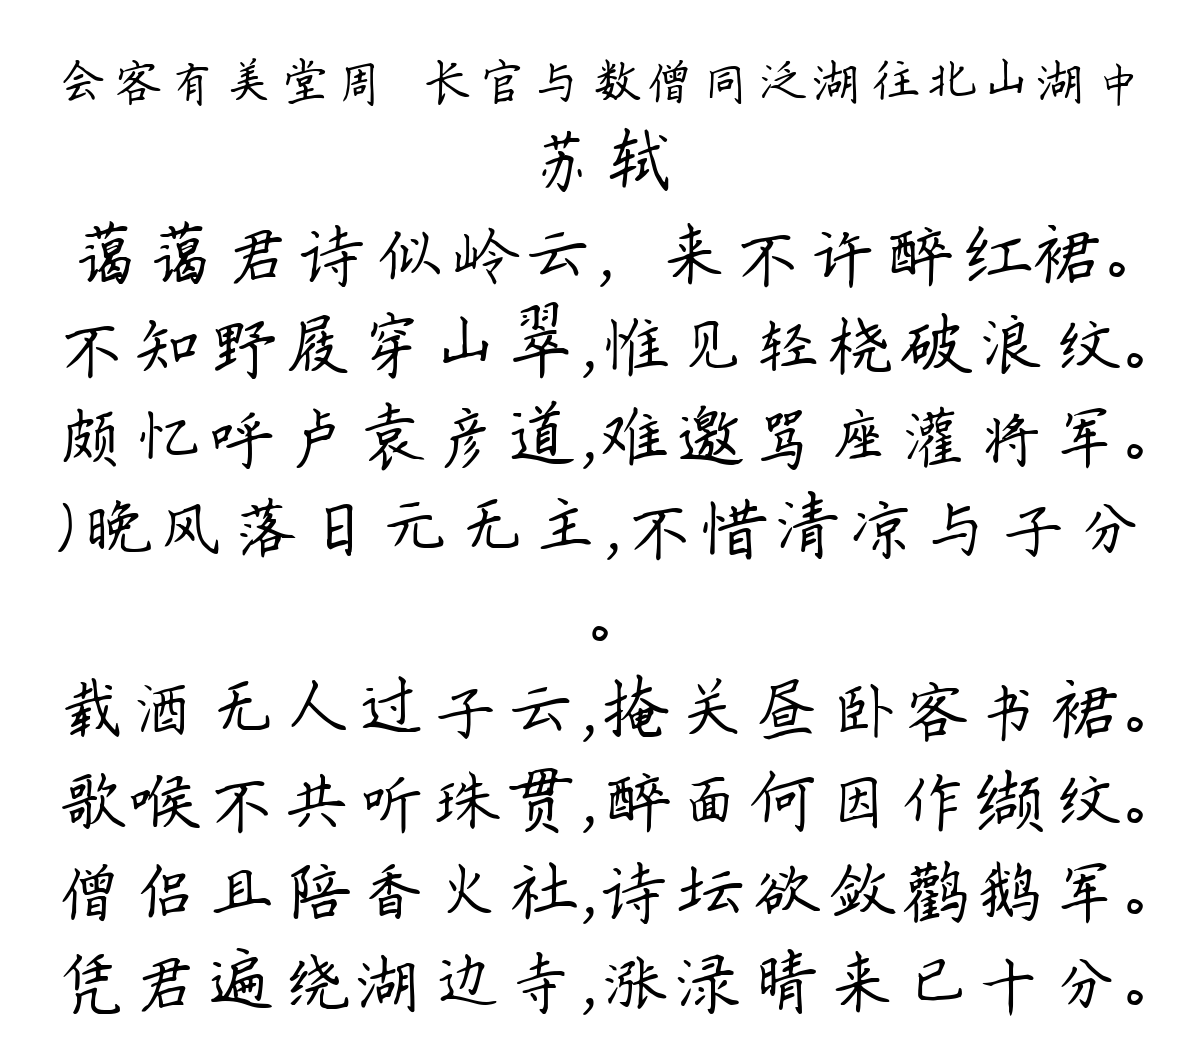 会客有美堂周 长官与数僧同泛湖往北山湖中
苏轼
蔼蔼君诗似岭云，来不许醉红裙。
不知野屐穿山翠,惟见轻桡破浪纹。
颇忆呼卢袁彦道,难邀骂座灌将军。
)晚风落日元无主,不惜清凉与子分
。
载酒无人过子云,掩关昼卧客书裙。
歌喉不共听珠贯,醉面何因作缬纹。
僧侣且陪香火社,诗坛欲敛鹳鹅军。
凭君遍绕湖边寺,涨渌晴来已十分。